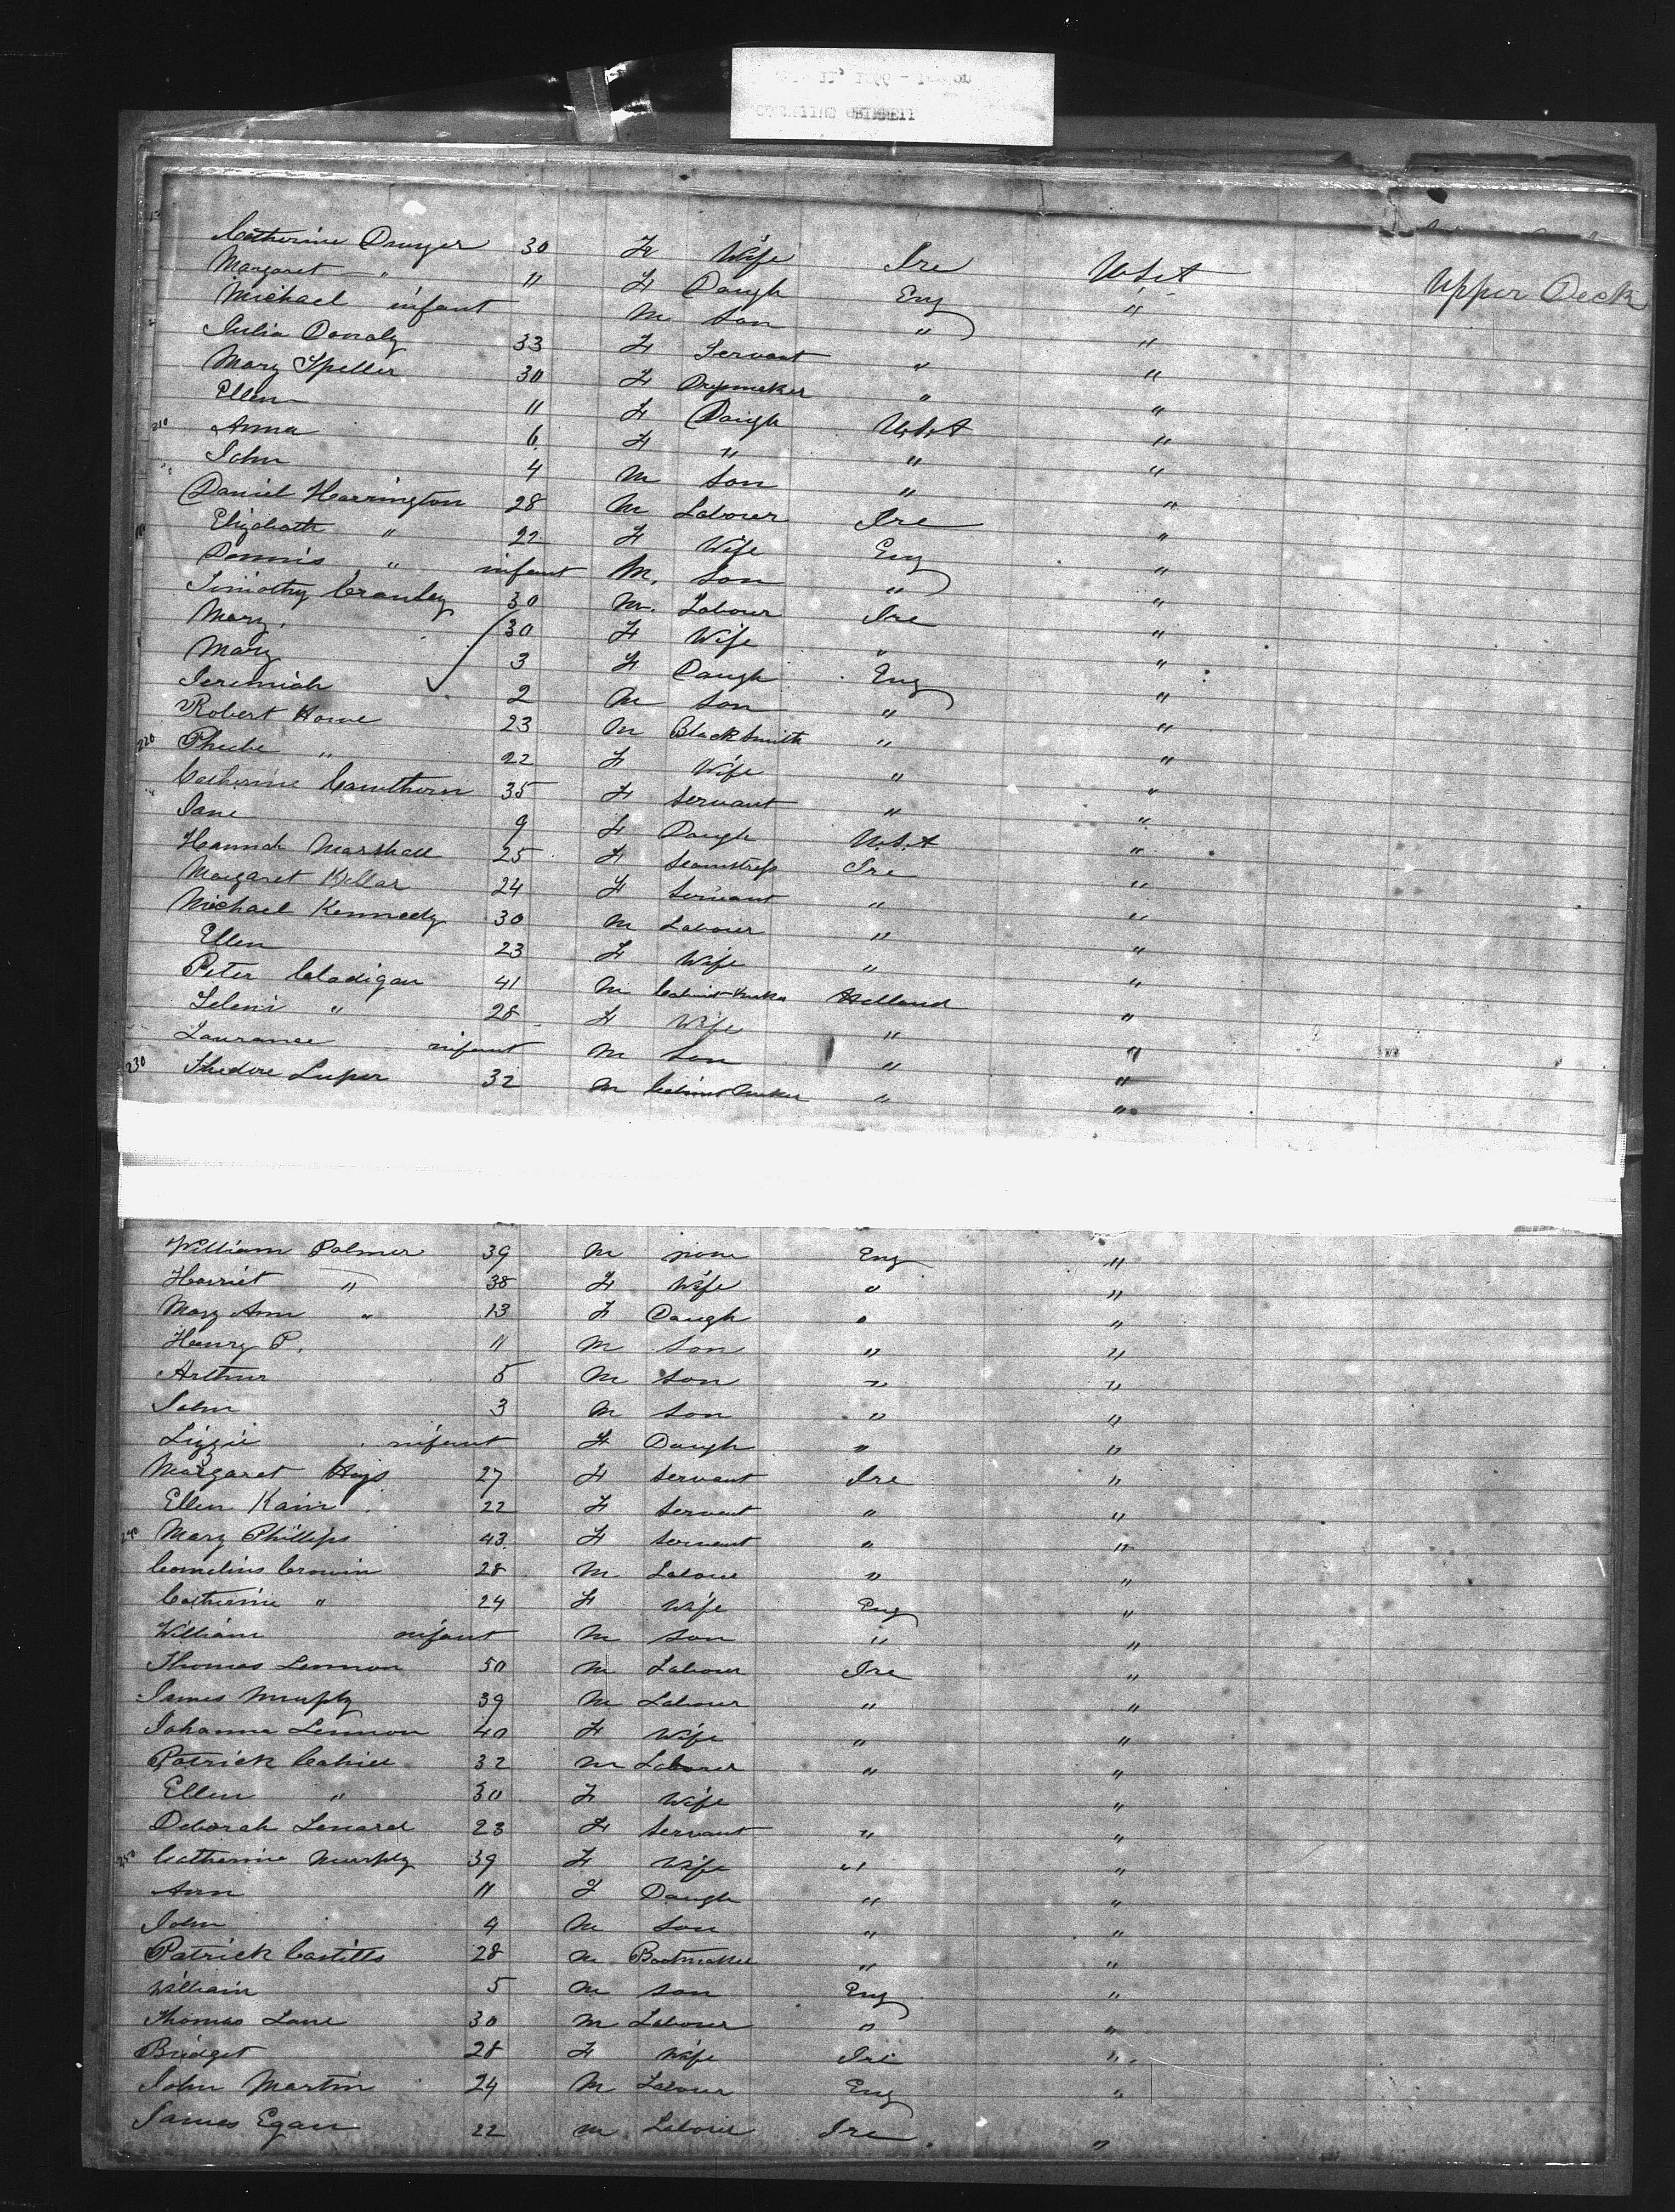 Catherine Dwyer 30 F Wife Ire U.S.A Upper Deck
Margaret " 11 F Daugh Eng "
Michael infant M Son " "
Julia Donaly 33 F Servant " "
Mary Speller 30 F Dressmaker " "
Ellen 11 F Daugh U.S.A "
210 Anna 6 F " " "
John 4 M Son " "
Daniel Harrington 28 M Labourer Ire "
Elizabeth " 22 F Wife Eng "
Dennis " infant M. Son " "
Timothy Crawley 30 M. Labour Ire "
Mary 30 F Wife " "
Mary 3 F Daugh Eng "
Jeremiah 2 M Son " "
Robert Howe 23 M Blacksmith " "
220 Phebe " 22 F Wife " "
Catherine Cawthorn 35 F Servant " "
Jane 9 F Daugh U.S.A "
Hannah Marshall 25 F Seamstress Ire "
Margaret Kellar 24 F Servant " "
Michael Kennedy 30 M Labourer " "
Ellen 23 F Wife " "
Peter Cladigan 41 M Cabinet Maker Holland "
" 28 F Wife " "
Laurance infant M Son " "
230 Thedore Luper 32 M Cabinet Maker " "
William Palmer 39 M none Eng "
Harriet " 38 F Wife " "
Mary Ann " 13 F Daugh " "
Henry P. 11 M Son " "
Arthur 5 M Son " "
John 3 M Son " "
Lizzie infant F Daugh " "
Margaret Hays 27 F Servant Ire "
Ellen Kain 22 F Servant " "
240 Mary Phillips 43 F Servant " "
Cornelius Cronin 28 M Labour " "
Catherine " 24 F Wife Eng "
William infant M Son " "
Thomas Lennon 50 M Labour Ire "
James Murphy 39 M Labour " "
Johanna Lennon 40 F Wife " "
Patrick Cahill 32 M Labourer " "
Ellen " 30 F Wife "
Deborah Lenard 23 F Servant " "
250 Catherine Murphy 39 F Wife " "
Ann 11 F Daugh " "
John 4 M Son " "
Patrick Castills 28 M Bootmaker " "
William 5 M Son Eng "
Thomas Lane 30 M Labour " "
Bridget 28 F Wife Ire "
John Martin 24 M Labour Eng "
James Egan 22 M Labour Ire "